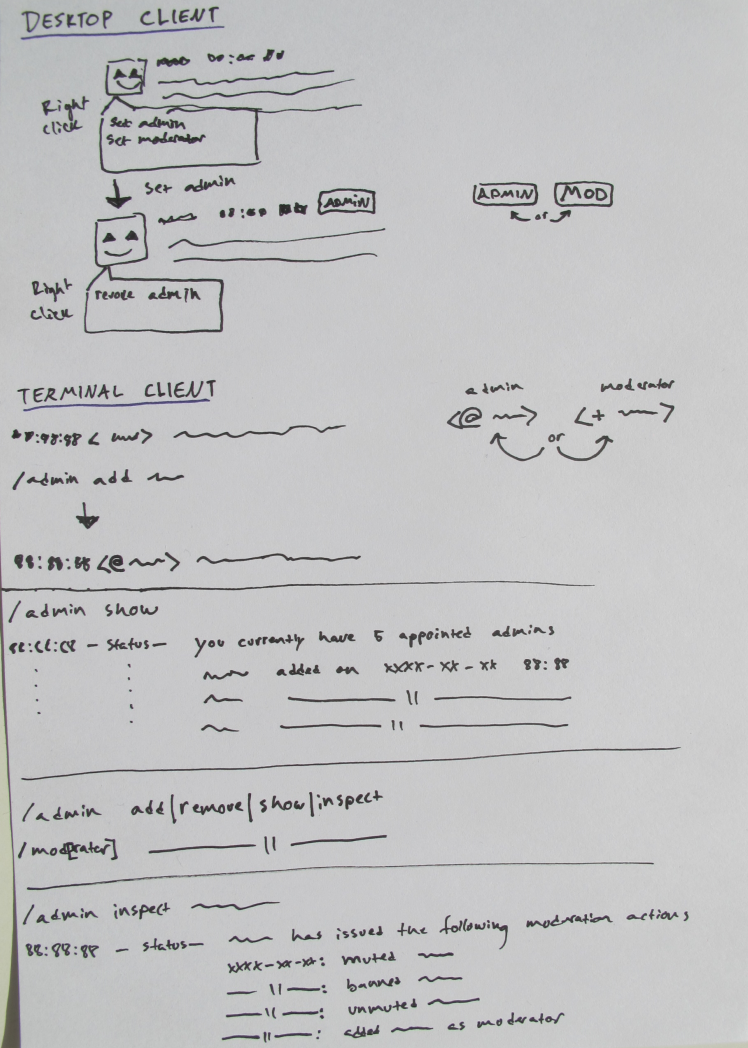 DESKTOP CLIENT
Right click
Set admin
Set moderator
Set admin
ADMIN
ADMIN MOD
or
Right click
revoke admin
TERMINAL CLIENT
admin moderator
<@ > <+ >
or
88:88:88 < >
/admin add
88:88:88 <@ >
/admin show
88:88:88 - Status - you currently have 5 appointed admins
added on xxxx-xx-xx 88:88
—— 11 ——
—— 11 ——
/admin add|remove|show|inspect
/mod[erator] —— 11 ——
/admin inspect
88:88:88 - status - has issued the following moderation actions
xxxx-xx-xx: muted
— 11 —: banned
— 11 —: unmuted
— 11 —: added as moderator